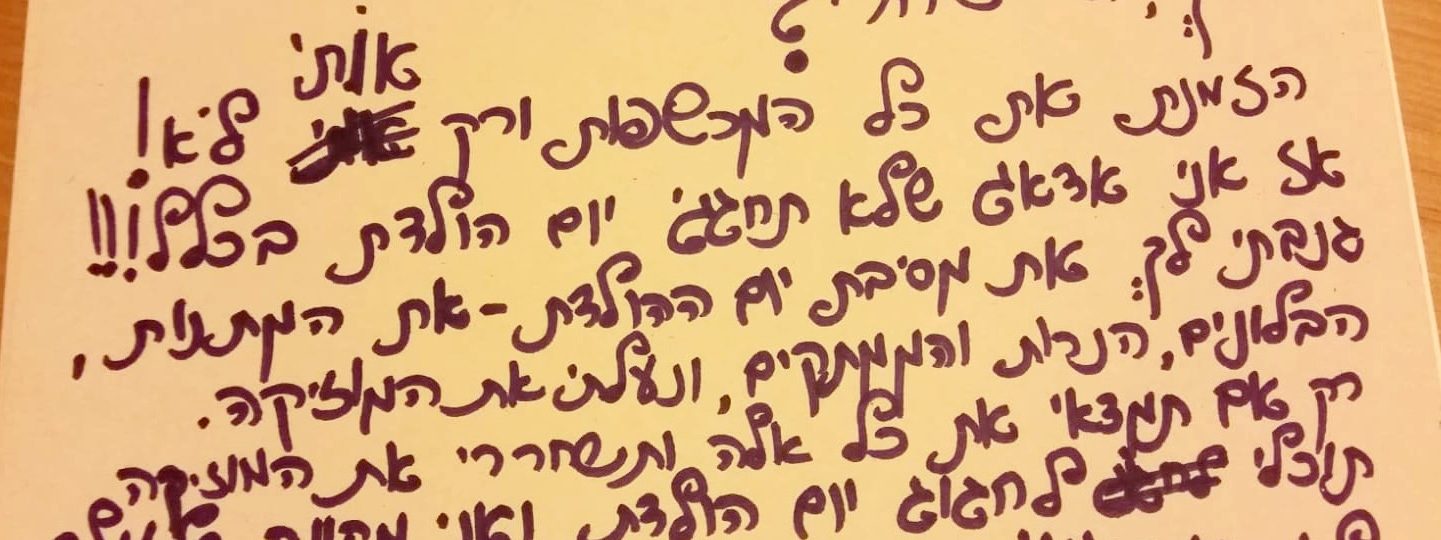 אותי
הזמנת את כל המכשפות ורק לא!
אז אני אדאג שלא תחגגי יום הולדת בכלל!!!
גנבתי לך את מסיבת יום ההולדת - את המתנות,
הבלונים, הנרות והממתקים, ונעלתי את המוזיקה.
רק אם תמצאי את כל אלה ותשחררי את המוזיקה
תוכלי לחגוג יום הולדת ואני